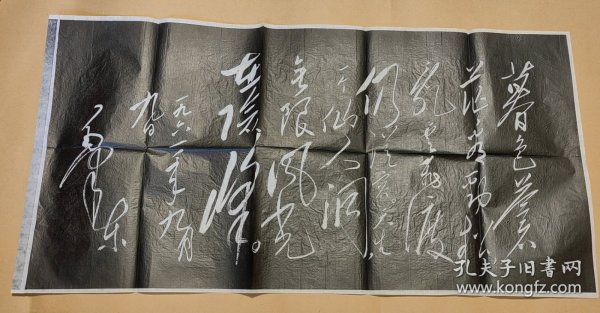 暮色苍
茫看劲松
乱云飞渡
仍从容天
生仙人洞
无限风光
在险峰。
一九六一年九月
九日
毛泽东
孔夫子旧书网
www.kongfz.com